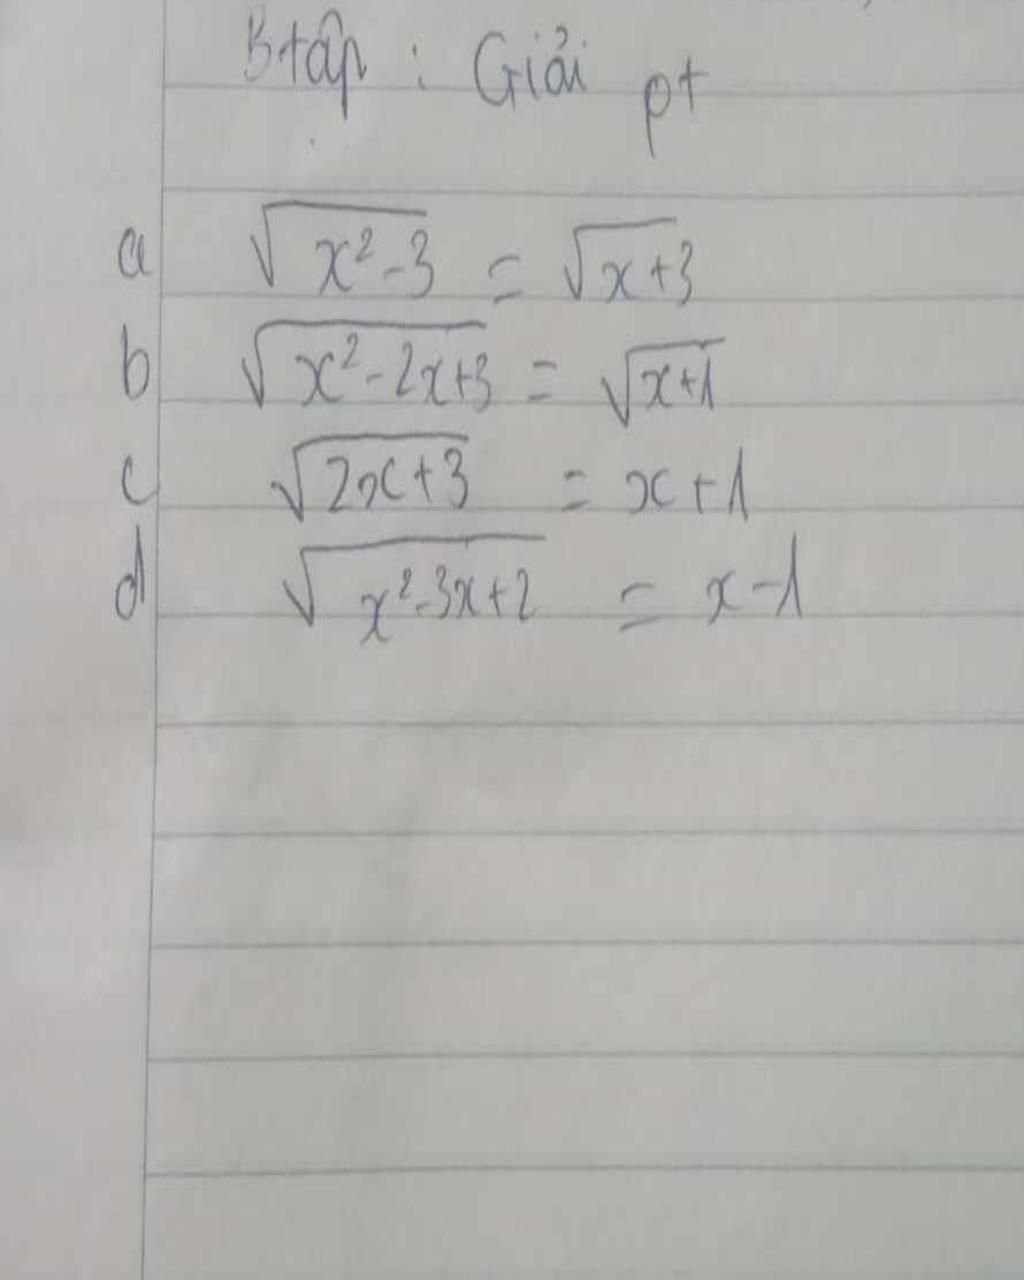 Btập : Giải pt
a √(x²-3) = √(x+3)
b √(x²-2x+3) = √(x+1)
c √(2x+3) = x+1
d √(x²-3x+2) = x-1